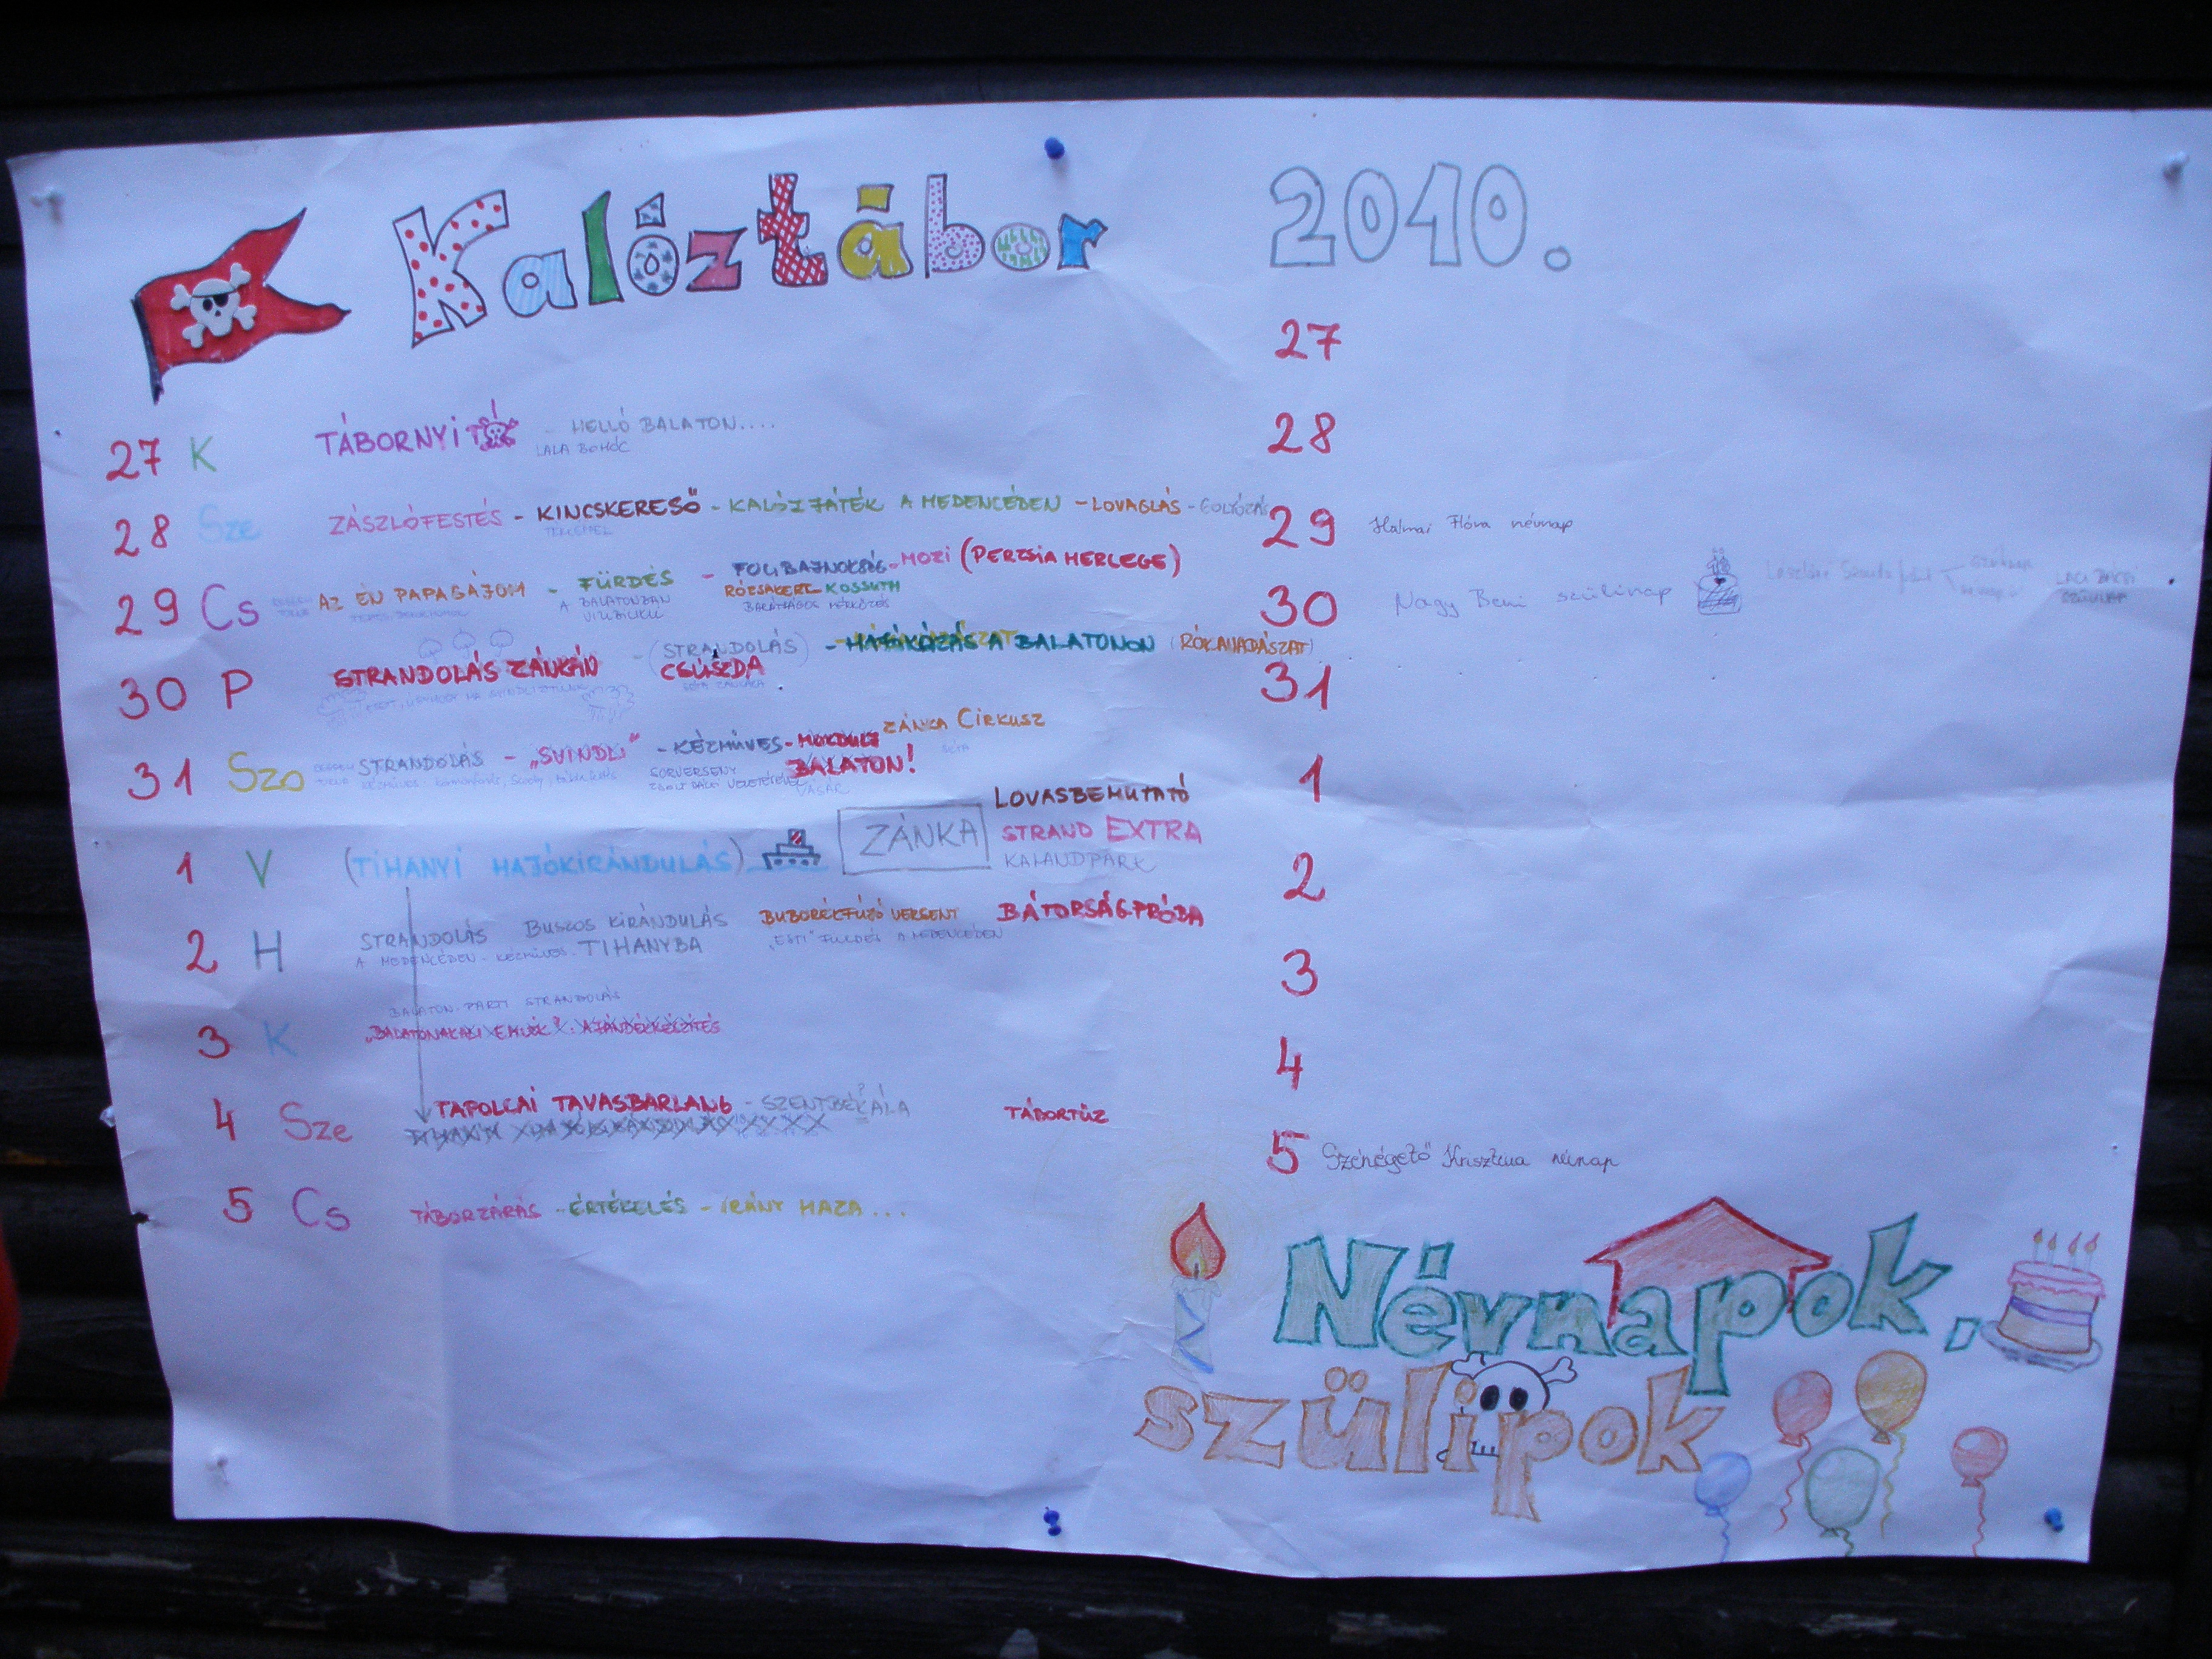 Kalóztábor 2010.
27 K TÁBORNYITÓ! - HELLÓ BALATON....
LALA BOHÓC
28 Sze ZÁSZLÓFESTÉS - KINCSKERESŐ - KALÓZJÁTÉK A MEDENCÉBEN - LOVAGLÁS - GOLYÓZÁS
29 Cs AZ ÉN PAPAGÁJOM - FÜRDÉS - FOCIBAJNOKSÁG - MOZI (PERZSIA HERCEGE)
A BALATONBAN
VIZIBICIKLI
RÓZSAKERT - KOSSUTH
BARÁTSÁGOS MÉRKŐZÉS
30 P STRANDOLÁS ZÁNKÁN - (STRANDOLÁS) - HAJÓKÁZÁS A BALATONON (RÓKAVADÁSZAT)
CSÚSZDA
31 Szo STRANDOLÁS - „SVINDLI" - KÉZMŰVES - ZÁNKA CIRKUSZ
SORVERSENY
BALATON!
VÁSÁR
1 V (TIHANYI HAJÓKIRÁNDULÁS) ZÁNKA
LOVASBEMUTATÓ
STRAND EXTRA
KALANDPARK
2 H STRANDOLÁS BUSZOS KIRÁNDULÁS BUBORÉKFÚJÓ VERSENY BÁTORSÁGPRÓBA
A MEDENCÉBEN - KÉZMŰVES - TIHANYBA „ESTI" FÜRDÉS A MEDENCÉBEN
BALATON-PARTI STRANDOLÁS
3 K „BALATONAKALI EMLÉK" - AJÁNDÉKKÉSZÍTÉS
4 Sze TAPOLCAI TAVASBARLANG - SZENTBÉKÁLA TÁBORTŰZ
5 Cs TÁBORZÁRÁS - ÉRTÉKELÉS - IRÁNY HAZA...
27
28
29 Halmai Flóra névnap
30 Nagy Beni szülinap
LACI BÁCSI
SZÜLINAP
31
1
2
3
4
5 Szénégető Krisztina névnap
Névnapok,
szülipok